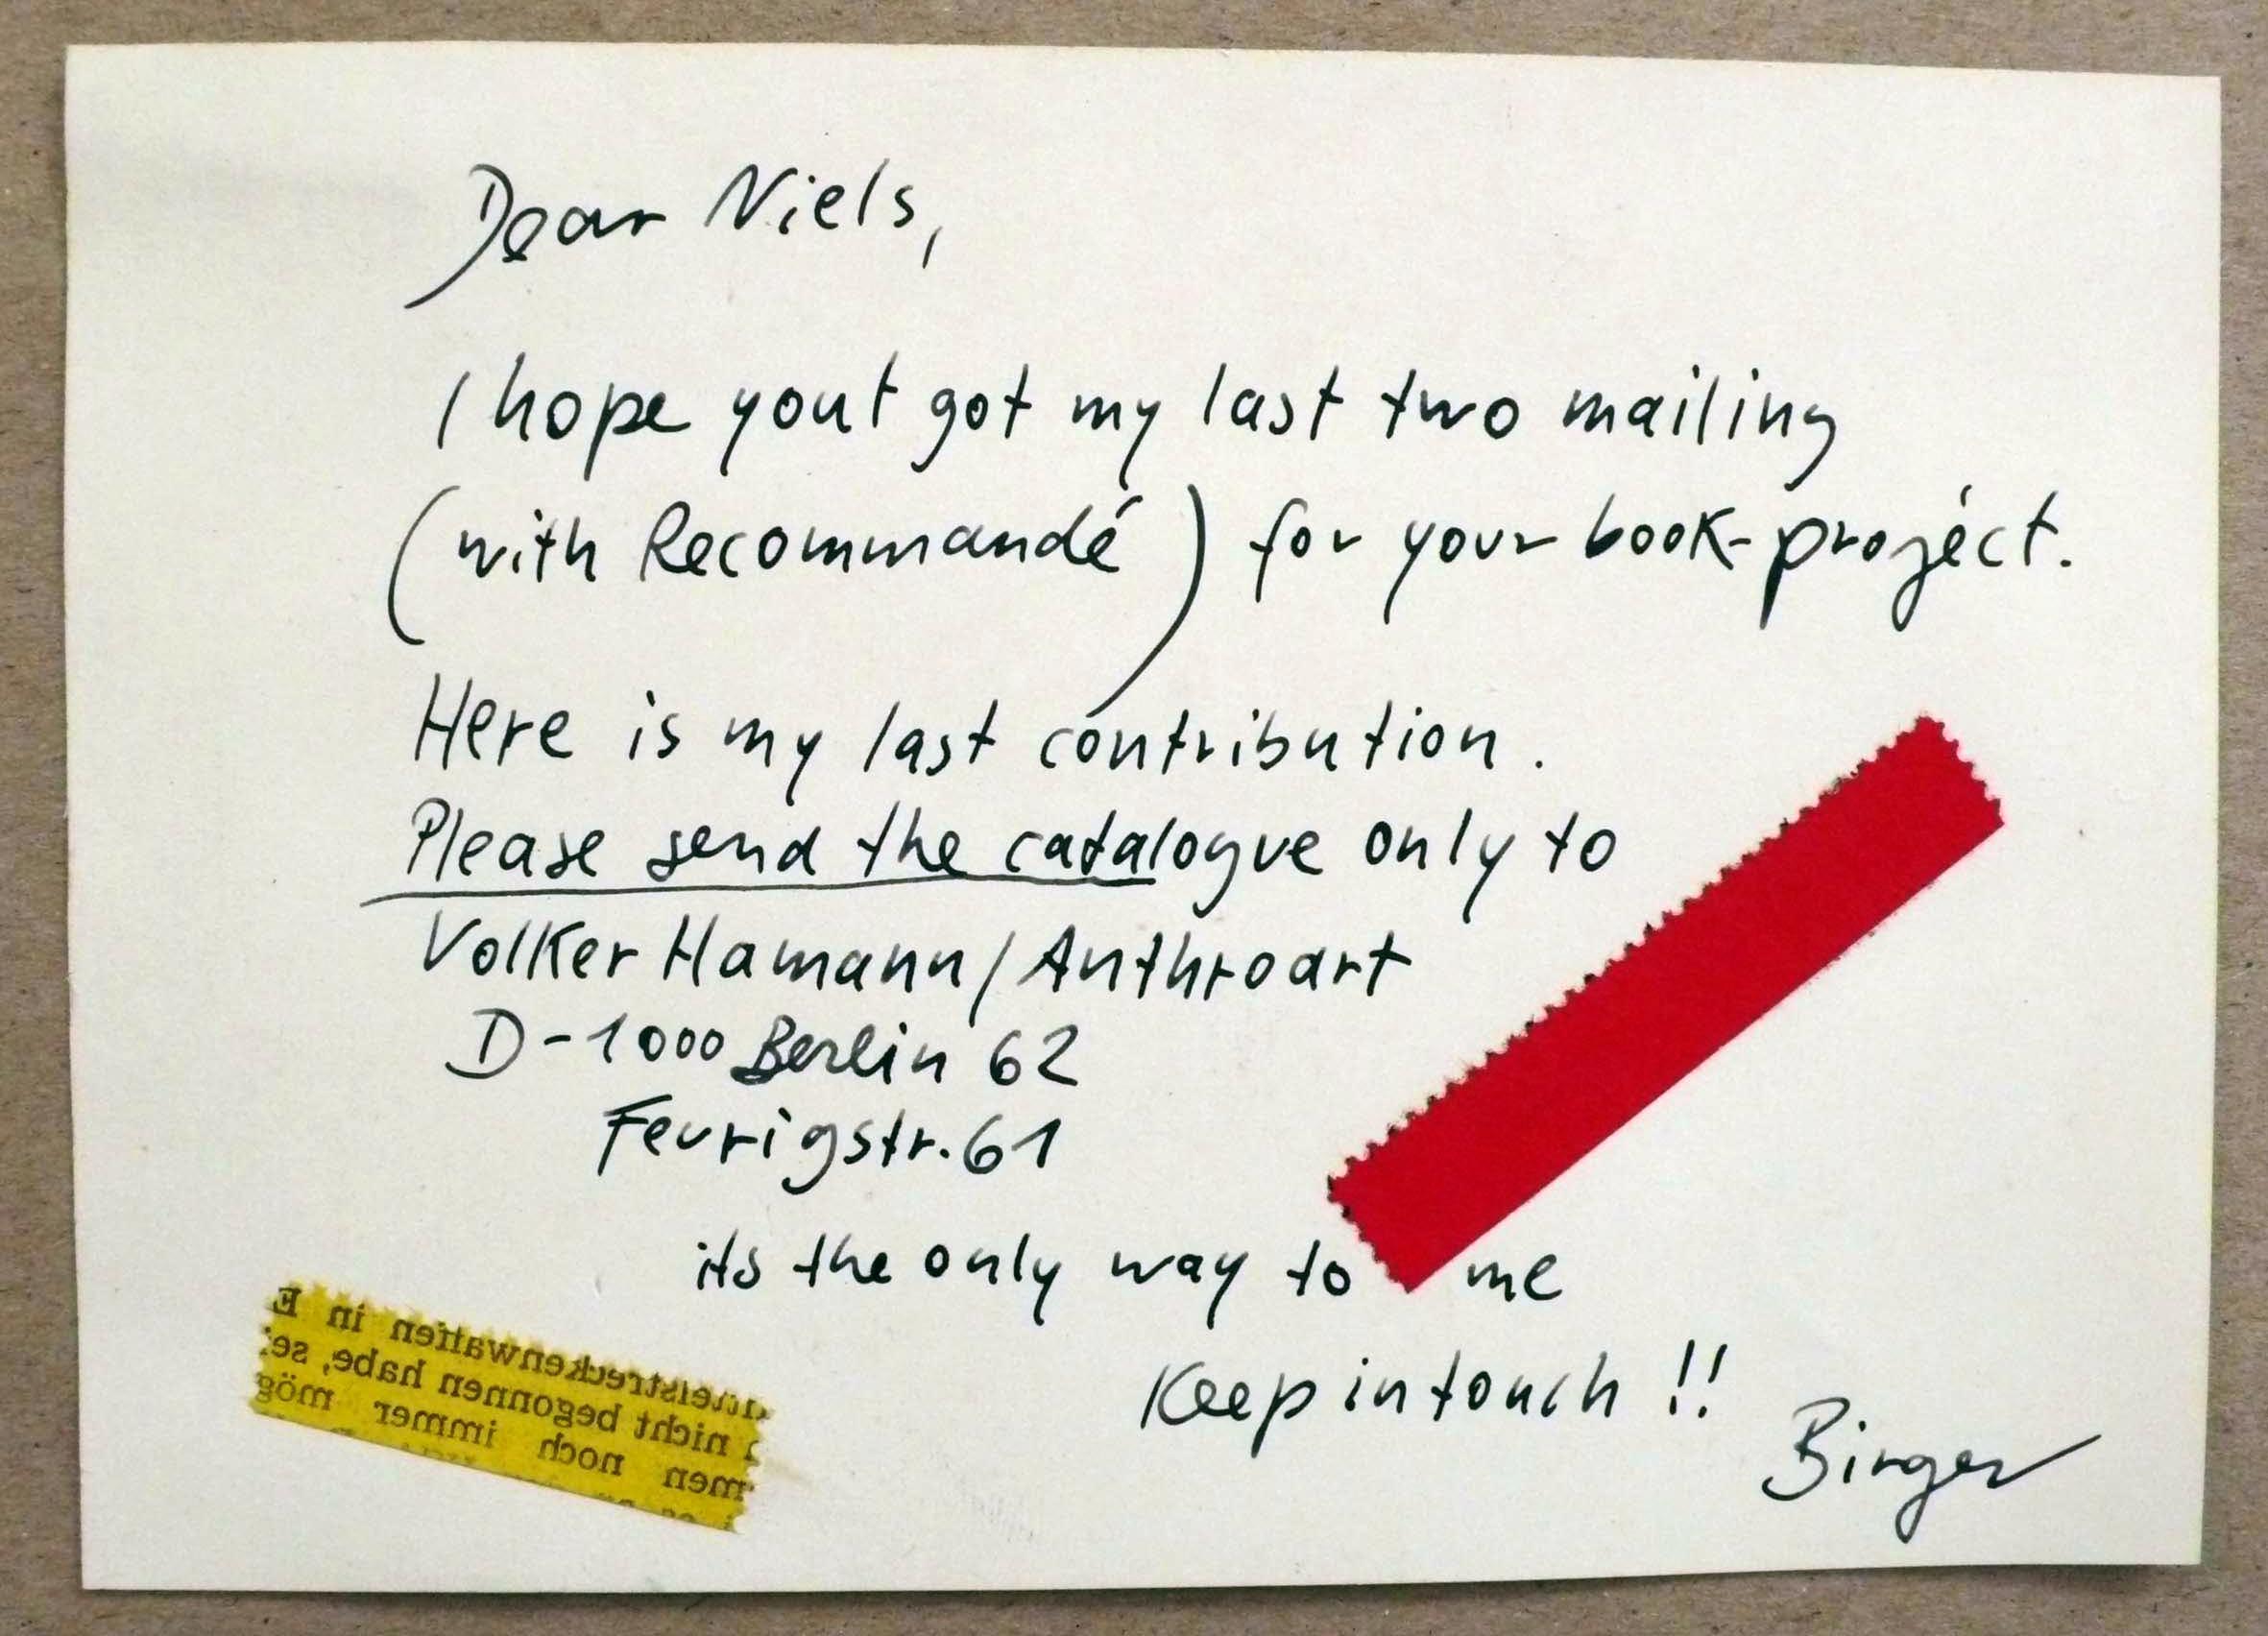 Dear Niels,
I hope yout got my last two mailing
(with Recommandé) for your book-project.
Here is my last contribution.
Please send the catalogue only to
Volker Hamann/Anthroart
D-1000 Berlin 62
Feurigstr. 61
its the only way to me
Keep in touch !!
Birger
telstreckenwaffen in E
nicht begonnen habe, se
men noch immer mög